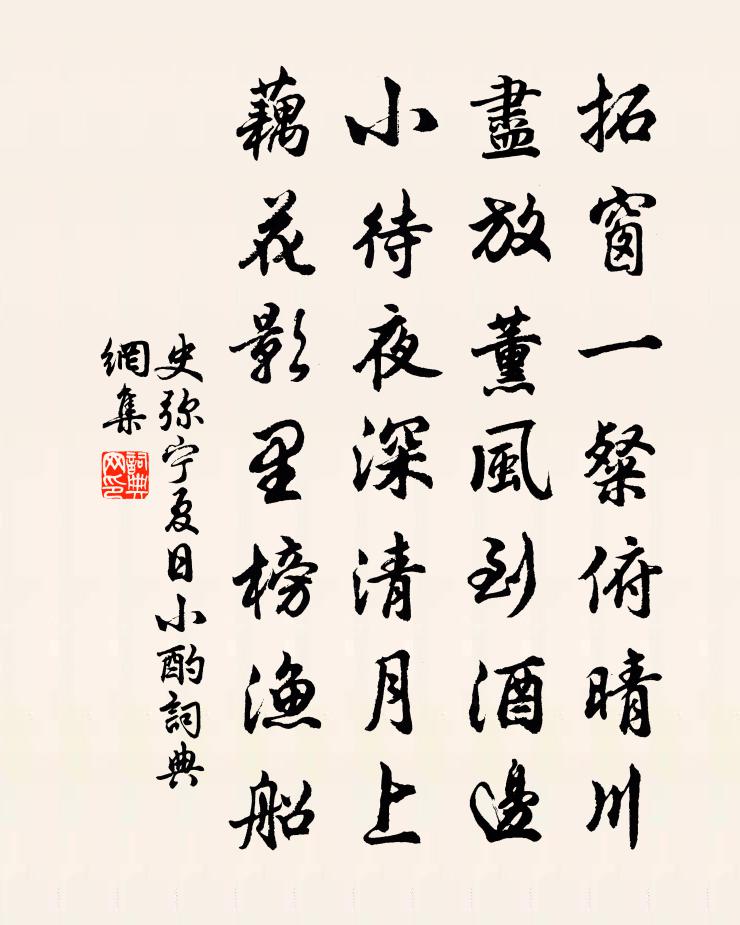 拓窗一粲俯晴川
盡放薰風到酒邊
小待夜深清月上
藕花影里榜渔船
史弥宁夏日小酌詞典
網集
詞典
网印